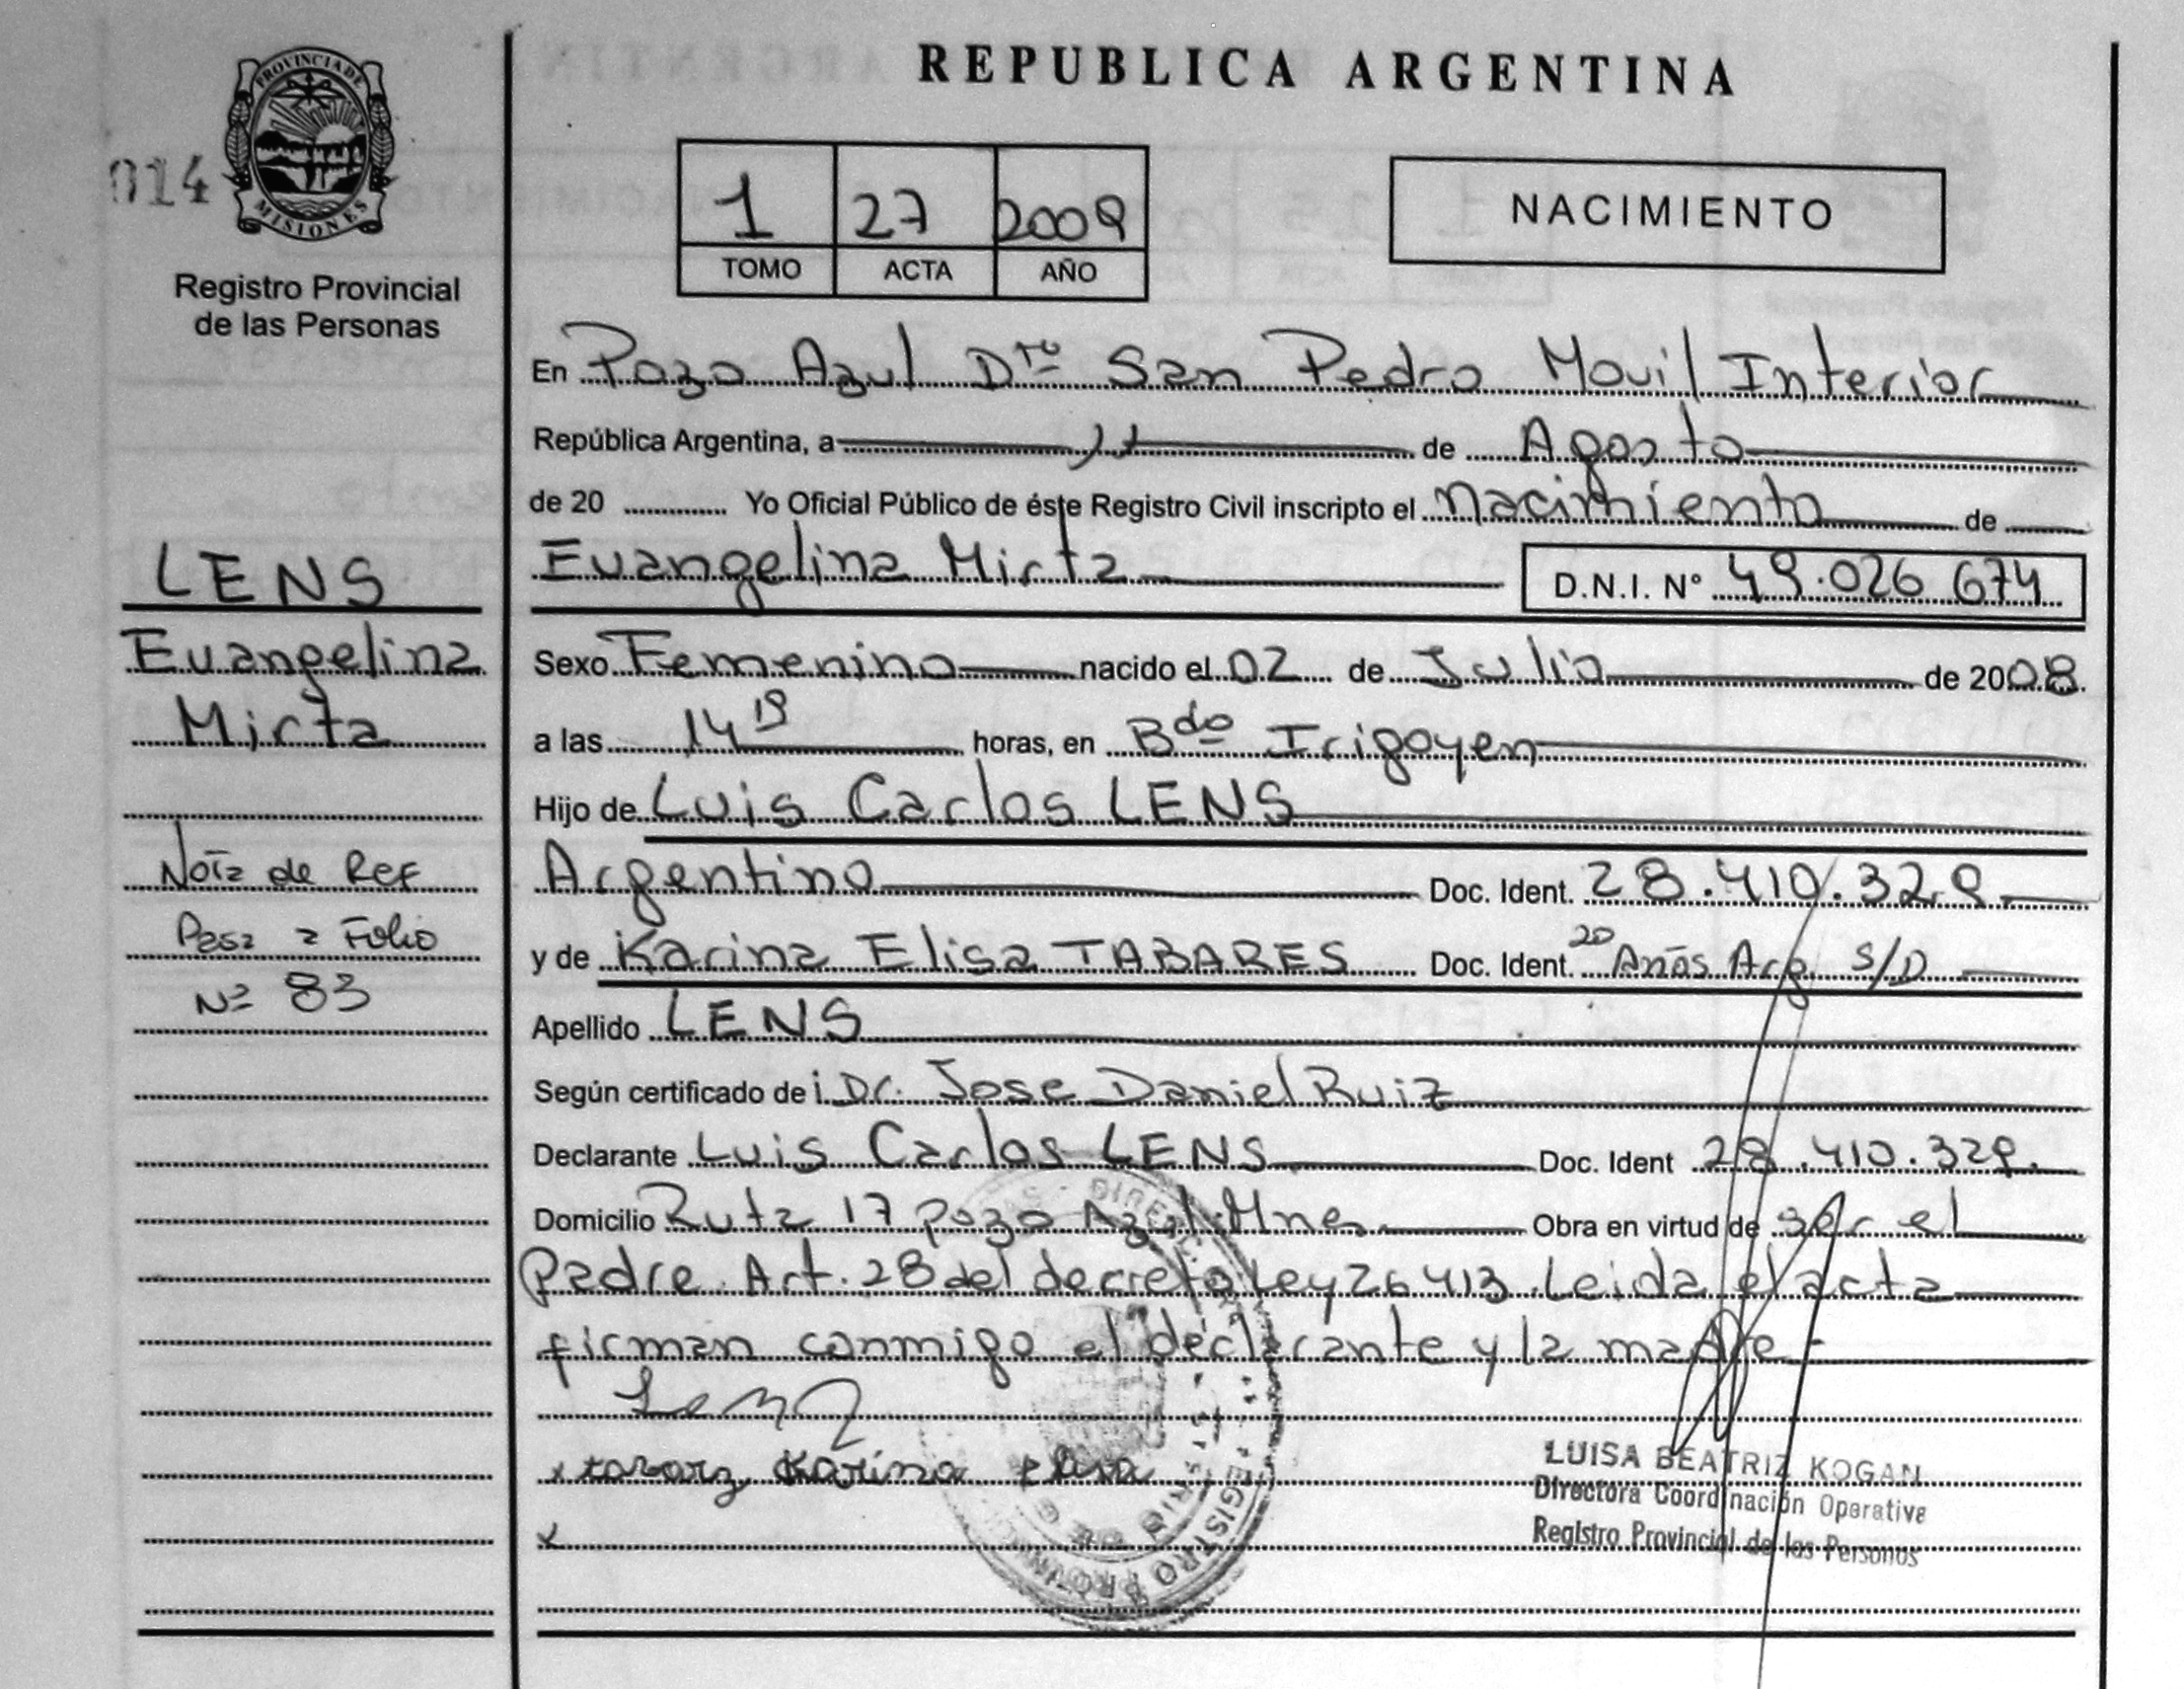 REPUBLICA ARGENTINA
PROVINCIA DE
MISIONES
014
Registro Provincial
de las Personas
1 27 2009
TOMO ACTA AÑO
NACIMIENTO
En Pozo Azul Dto San Pedro Movil Interior
República Argentina, a de Agosto
de 20 Yo Oficial Público de éste Registro Civil inscripto el Nacimiento de
Evangelina Mirta D.N.I. Nº 49.026 674
LENS
Evangelina
Mirta
Nota de Ref
Pasa a Folio
Nº 83
Sexo Femenino nacido el 02 de Julio de 2008.
a las 14 19 horas, en Bdo Irigoyen
Hijo de Luis Carlos LENS
Argentino Doc. Ident. 28.410.329.
y de Karina Elisa TABARES Doc. Ident. 20 Años Arg. S/D
Apellido LENS
Según certificado de Dr. Jose Daniel Ruiz
Declarante Luis Carlos LENS Doc. Ident 28.410.329.
Domicilio Ruta 17 Pozo Azul. Mnes. Obra en virtud de ser el
Padre. Art. 28 del decreto Ley 26413. Leida el acta
firman conmigo el declarante y la madre.-
Karina
LUISA BEATRIZ KOGAN
Directora Coordinación Operativa
Registro Provincial de las Personas
REGISTRO PROVINCIAL